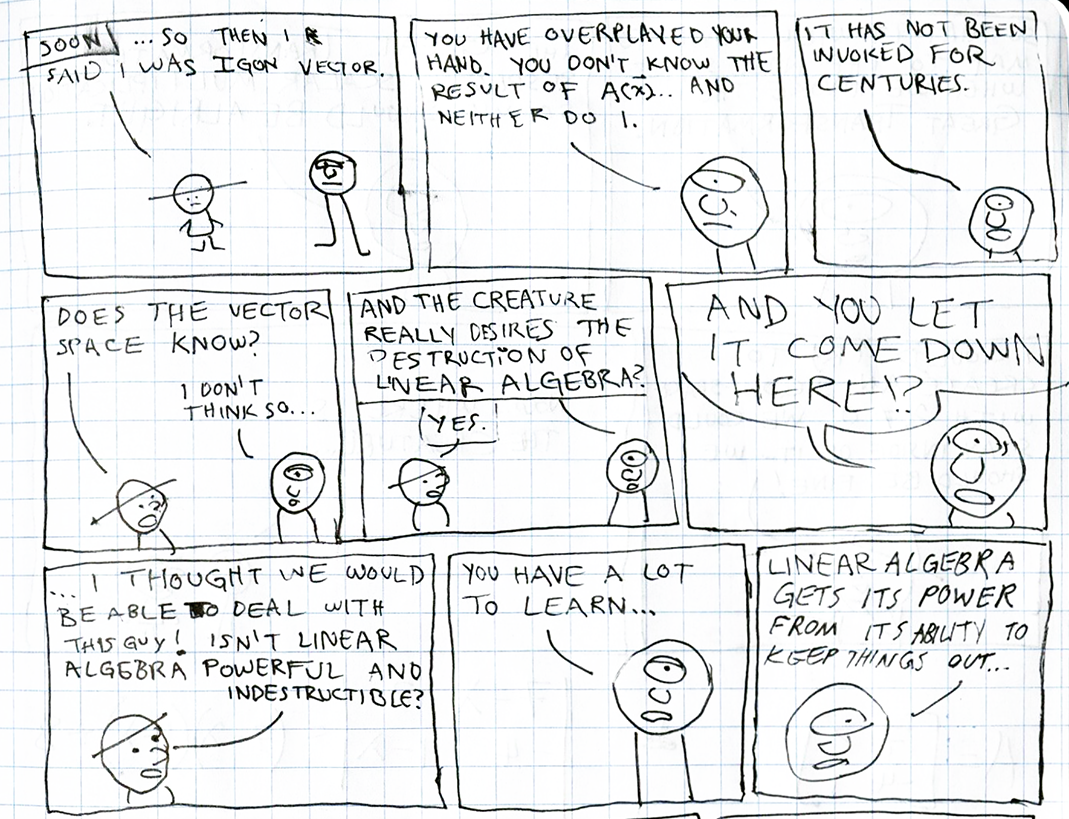 SOON
...SO THEN I
SAID I WAS IGON VECTOR.
YOU HAVE OVERPLAYED YOUR
HAND. YOU DON'T KNOW THE
RESULT OF A(x⃗)... AND
NEITHER DO I.
IT HAS NOT BEEN
INVOKED FOR
CENTURIES.
DOES THE VECTOR
SPACE KNOW?
I DON'T
THINK SO...
AND THE CREATURE
REALLY DESIRES THE
DESTRUCTION OF
LINEAR ALGEBRA?
YES.
AND YOU LET
IT COME DOWN
HERE!?
...I THOUGHT WE WOULD
BE ABLE TO DEAL WITH
THIS GUY! ISN'T LINEAR
ALGEBRA POWERFUL AND
INDESTRUCTIBLE?
YOU HAVE A LOT
TO LEARN...
LINEAR ALGEBRA
GETS ITS POWER
FROM ITS ABILITY TO
KEEP THINGS OUT...